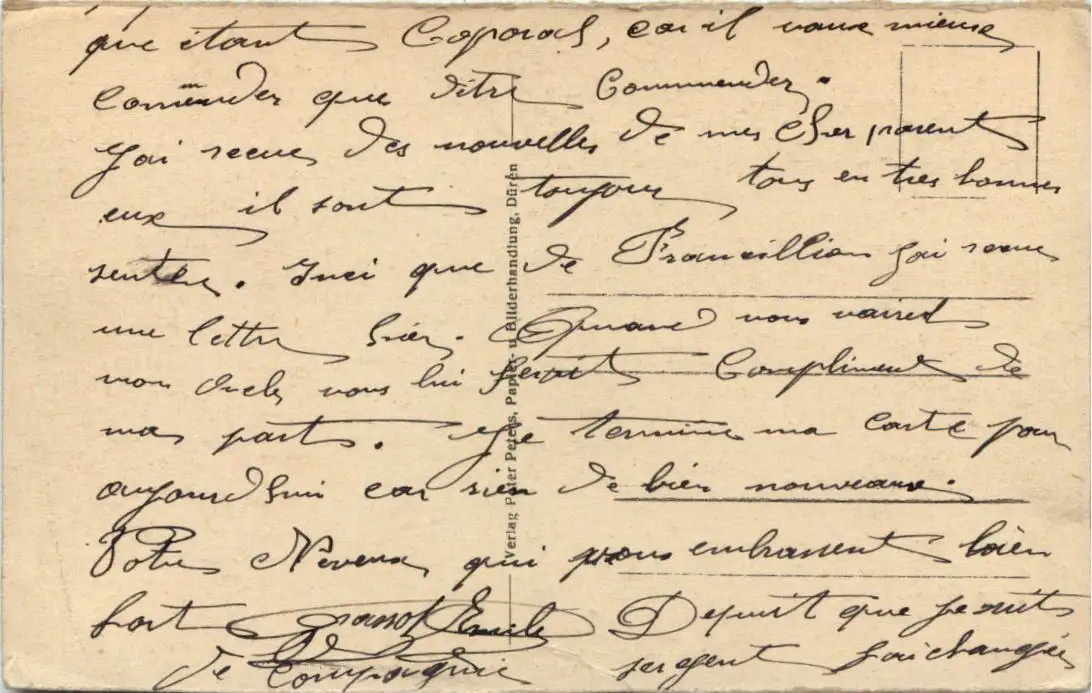 que étant Caporal, car il vaux mieux
Comender que d'être Commender.
J'ai recue des nouvelles de mes Cher parent
eux il sont toujour tous en tres bonnes
senter. Inci que de j'ai recue
une lettre hier. Quand vous vairet
mon Oncle vous lui ferait Compliment de
mas part. Je termine ma carte pour
aujourd'hui car rien de bien nouveaux.
Votre Neveux qui vous embrassent bien
fort Emile Depuit que je suit
sergent j'ai changér
de Compagnie
Verlag Peter Peters, Papier- u Bilderhandlung, Düren